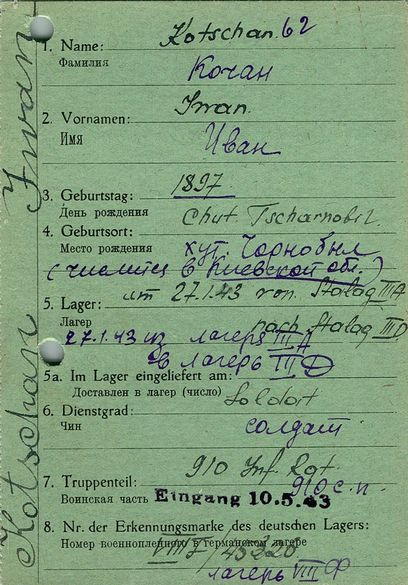 Kotschan Iwan
Kotschan. 62
1. Name:
Фамилия
Кочан
Iwan.
2. Vornamen:
Имя
Иван
1897
3. Geburtstag:
День рождения
Chut Tscharnobil.
4. Geburtsort:
Место рождения хут. Чорнобыл
(числится в Киевской обл.)
am 27.1.43 von Stalag III A
5. Lager:
Лагер nach Stalag III D
27.1.43 из лагеря III A
в лагерь III D
5a. Im Lager eingeliefert am:
Доставлен в лагер (число)
Soldat
6. Dienstgrad:
Чин солдат
910 Inf. Rgt.
7. Truppenteil: 910 с.п.
Воинская часть Eingang 10.5.43
8. Nr. der Erkennungsmarke des deutschen Lagers:
Номер военнопленного в германском лагере
лагерь VIII Ф